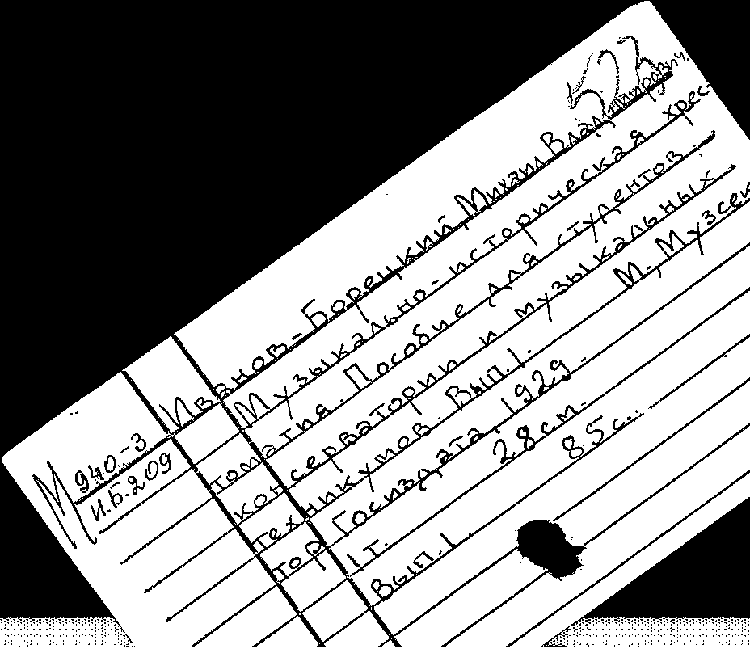 523
Иванов-Борецкий, Михаил Владимирович.
Музыкально-историческая хрес-
томатия. Пособие для студентов
консерватории и музыкальных
техникумов. Вып.1. М., Музсек-
тор Госиздата, 1929.
1т. 28см.
Вып.1. 85с.
М 940-3
И.Б.209